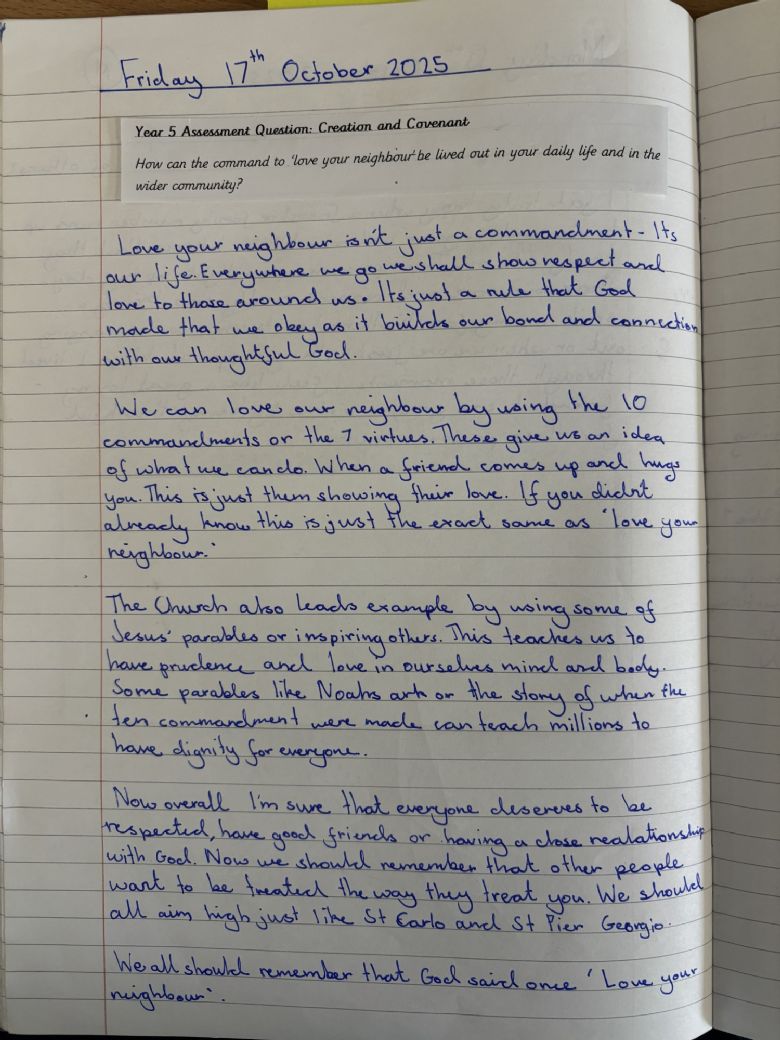 Friday 17th October 2025
Year 5 Assessment Question: Creation and Covenant
How can the command to 'love your neighbour' be lived out in your daily life and in the
wider community?
Love your neighbour isn't just a commandment - Its
our life. Everywhere we go we shall show respect and
love to those around us. Its just a rule that God
made that we obey as it biuilds our bond and connection
with our thoughtful God.
We can love our neighbour by using the 10
commandments or the 7 virtues. These give us an idea
of what we can do. When a friend comes up and hugs
you. This is just them showing their love. If you didn't
already know this is just the exact same as 'love your
neighbour.'
The Church also leads example by using some of
Jesus' parables or inspiring others. This teaches us to
have prudence and love in ourselves mind and body.
Some parables like Noahs ark or the story of when the
ten commandment were made can teach millions to
have dignity for everyone.
Now overall I'm sure that everyone deserves to be
respected, have good friends or having a close realationship
with God. Now we should remember that other people
want to be treated the way they treat you. We should
all aim high just like St Carlo and St Pier Georgio.
We all should remember that God said once 'Love your
neighbour'.